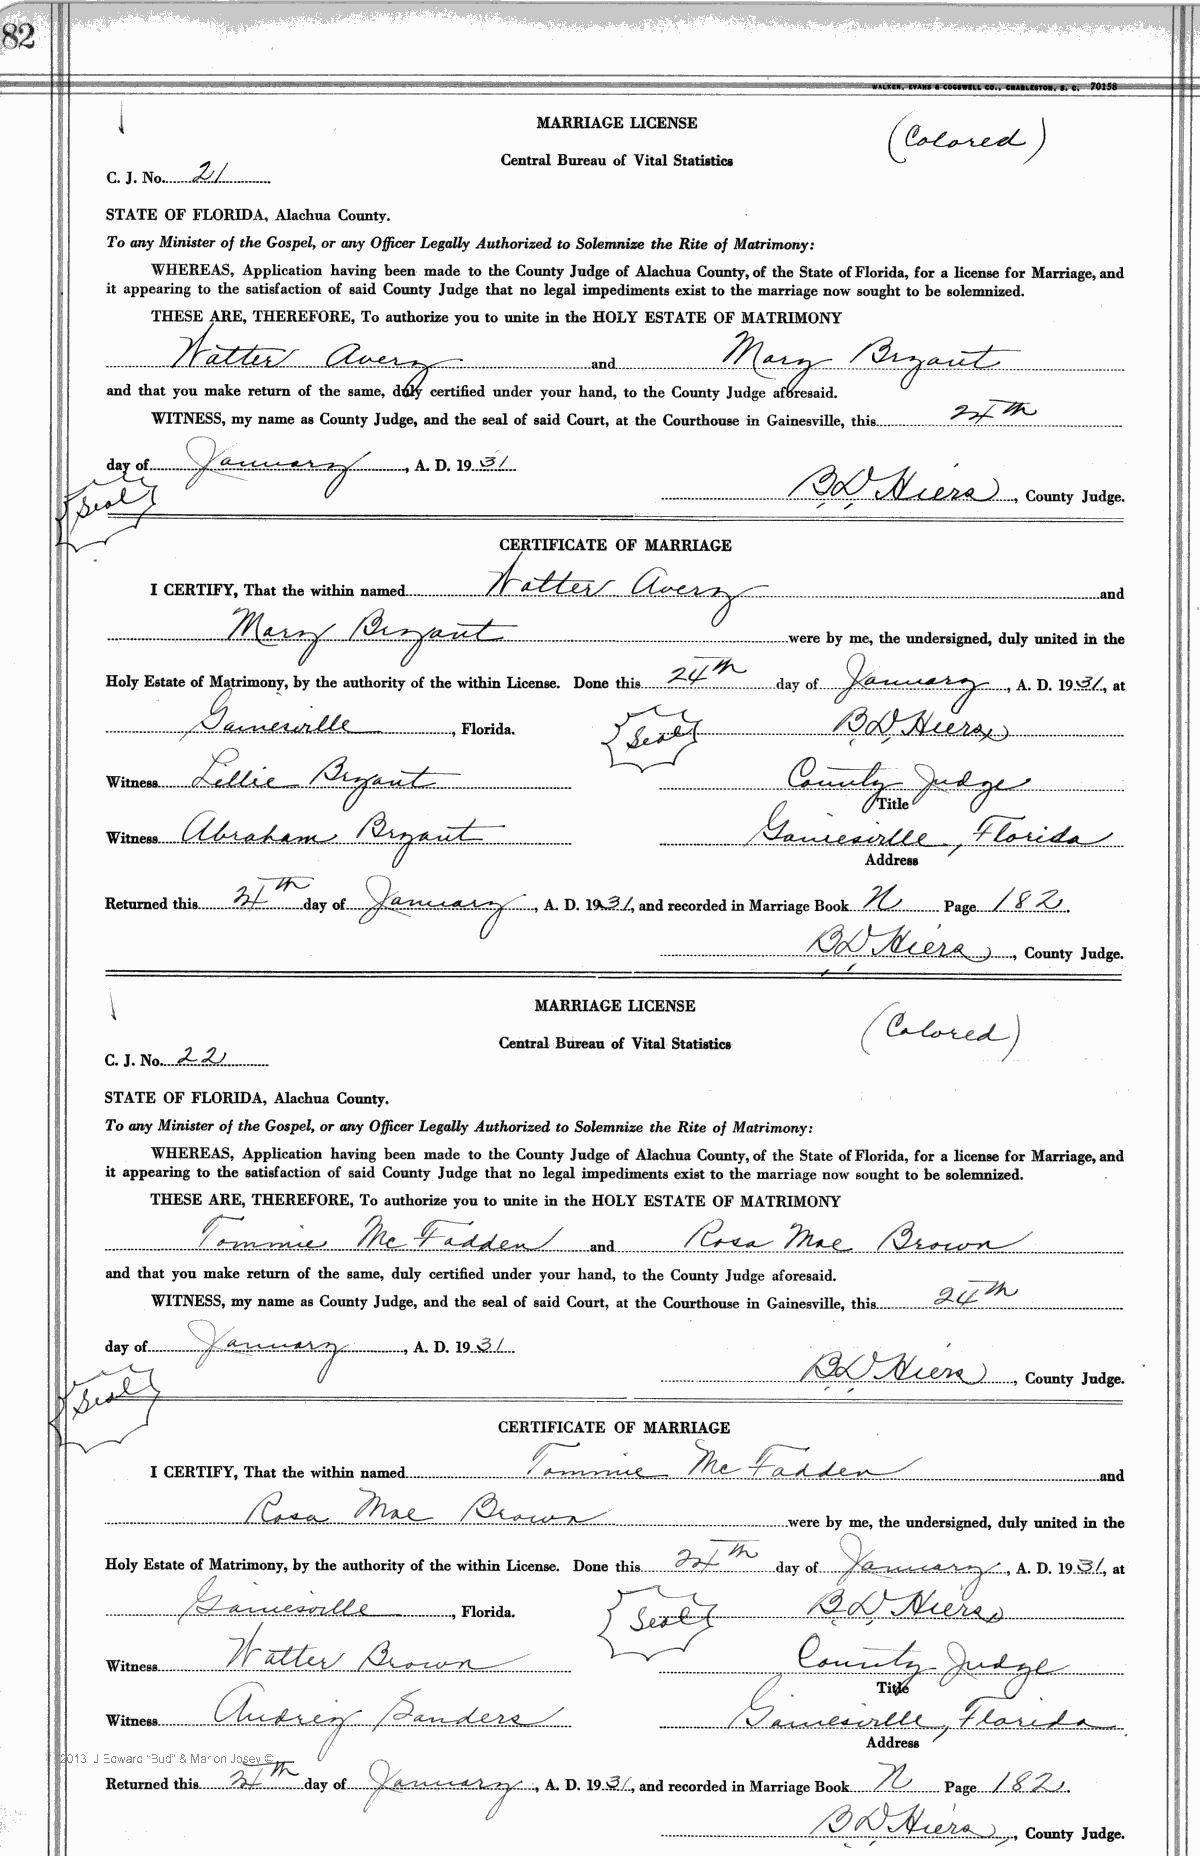 82
WALKER, EVANS & COGSWELL CO., CHARLESTON, S. C. 70158
MARRIAGE LICENSE (Colored)
Central Bureau of Vital Statistics
C. J. No. 21
STATE OF FLORIDA, Alachua County.
To any Minister of the Gospel, or any Officer Legally Authorized to Solemnize the Rite of Matrimony:
WHEREAS, Application having been made to the County Judge of Alachua County, of the State of Florida, for a license for Marriage, and
it appearing to the satisfaction of said County Judge that no legal impediments exist to the marriage now sought to be solemnized.
THESE ARE, THEREFORE, To authorize you to unite in the HOLY ESTATE OF MATRIMONY
Walter Avery and Mary Bryant
and that you make return of the same, duly certified under your hand, to the County Judge aforesaid.
WITNESS, my name as County Judge, and the seal of said Court, at the Courthouse in Gainesville, this 24th
day of January, A. D. 1931
Seal B D Hiers, County Judge.
CERTIFICATE OF MARRIAGE
I CERTIFY, That the within named Walter Avery and
Mary Bryant were by me, the undersigned, duly united in the
Holy Estate of Matrimony, by the authority of the within License. Done this 24th day of January, A. D. 1931, at
Gainesville, Florida. Seal B D Hiers
Witness Lillie Bryant County Judge
Title
Witness Abraham Bryant Gainesville, Florida
Address
Returned this 24th day of January, A. D. 1931, and recorded in Marriage Book N Page 182.
B D Hiers, County Judge.
MARRIAGE LICENSE (Colored)
Central Bureau of Vital Statistics
C. J. No. 22
STATE OF FLORIDA, Alachua County.
To any Minister of the Gospel, or any Officer Legally Authorized to Solemnize the Rite of Matrimony:
WHEREAS, Application having been made to the County Judge of Alachua County, of the State of Florida, for a license for Marriage, and
it appearing to the satisfaction of said County Judge that no legal impediments exist to the marriage now sought to be solemnized.
THESE ARE, THEREFORE, To authorize you to unite in the HOLY ESTATE OF MATRIMONY
Tommie McFadden and Rosa Mae Brown
and that you make return of the same, duly certified under your hand, to the County Judge aforesaid.
WITNESS, my name as County Judge, and the seal of said Court, at the Courthouse in Gainesville, this 24th
day of January, A. D. 1931
Seal B D Hiers, County Judge.
CERTIFICATE OF MARRIAGE
I CERTIFY, That the within named Tommie McFadden and
Rosa Mae Brown were by me, the undersigned, duly united in the
Holy Estate of Matrimony, by the authority of the within License. Done this 24th day of January, A. D. 1931, at
Gainesville, Florida. Seal B D Hiers
Witness Walter Brown County Judge
Title
Witness Audrey Sanders Gainesville, Florida.
Address
2013 J Edward "Bud" & Marion Josey ©
Returned this 24th day of January, A. D. 1931, and recorded in Marriage Book N Page 182.
B D Hiers, County Judge.